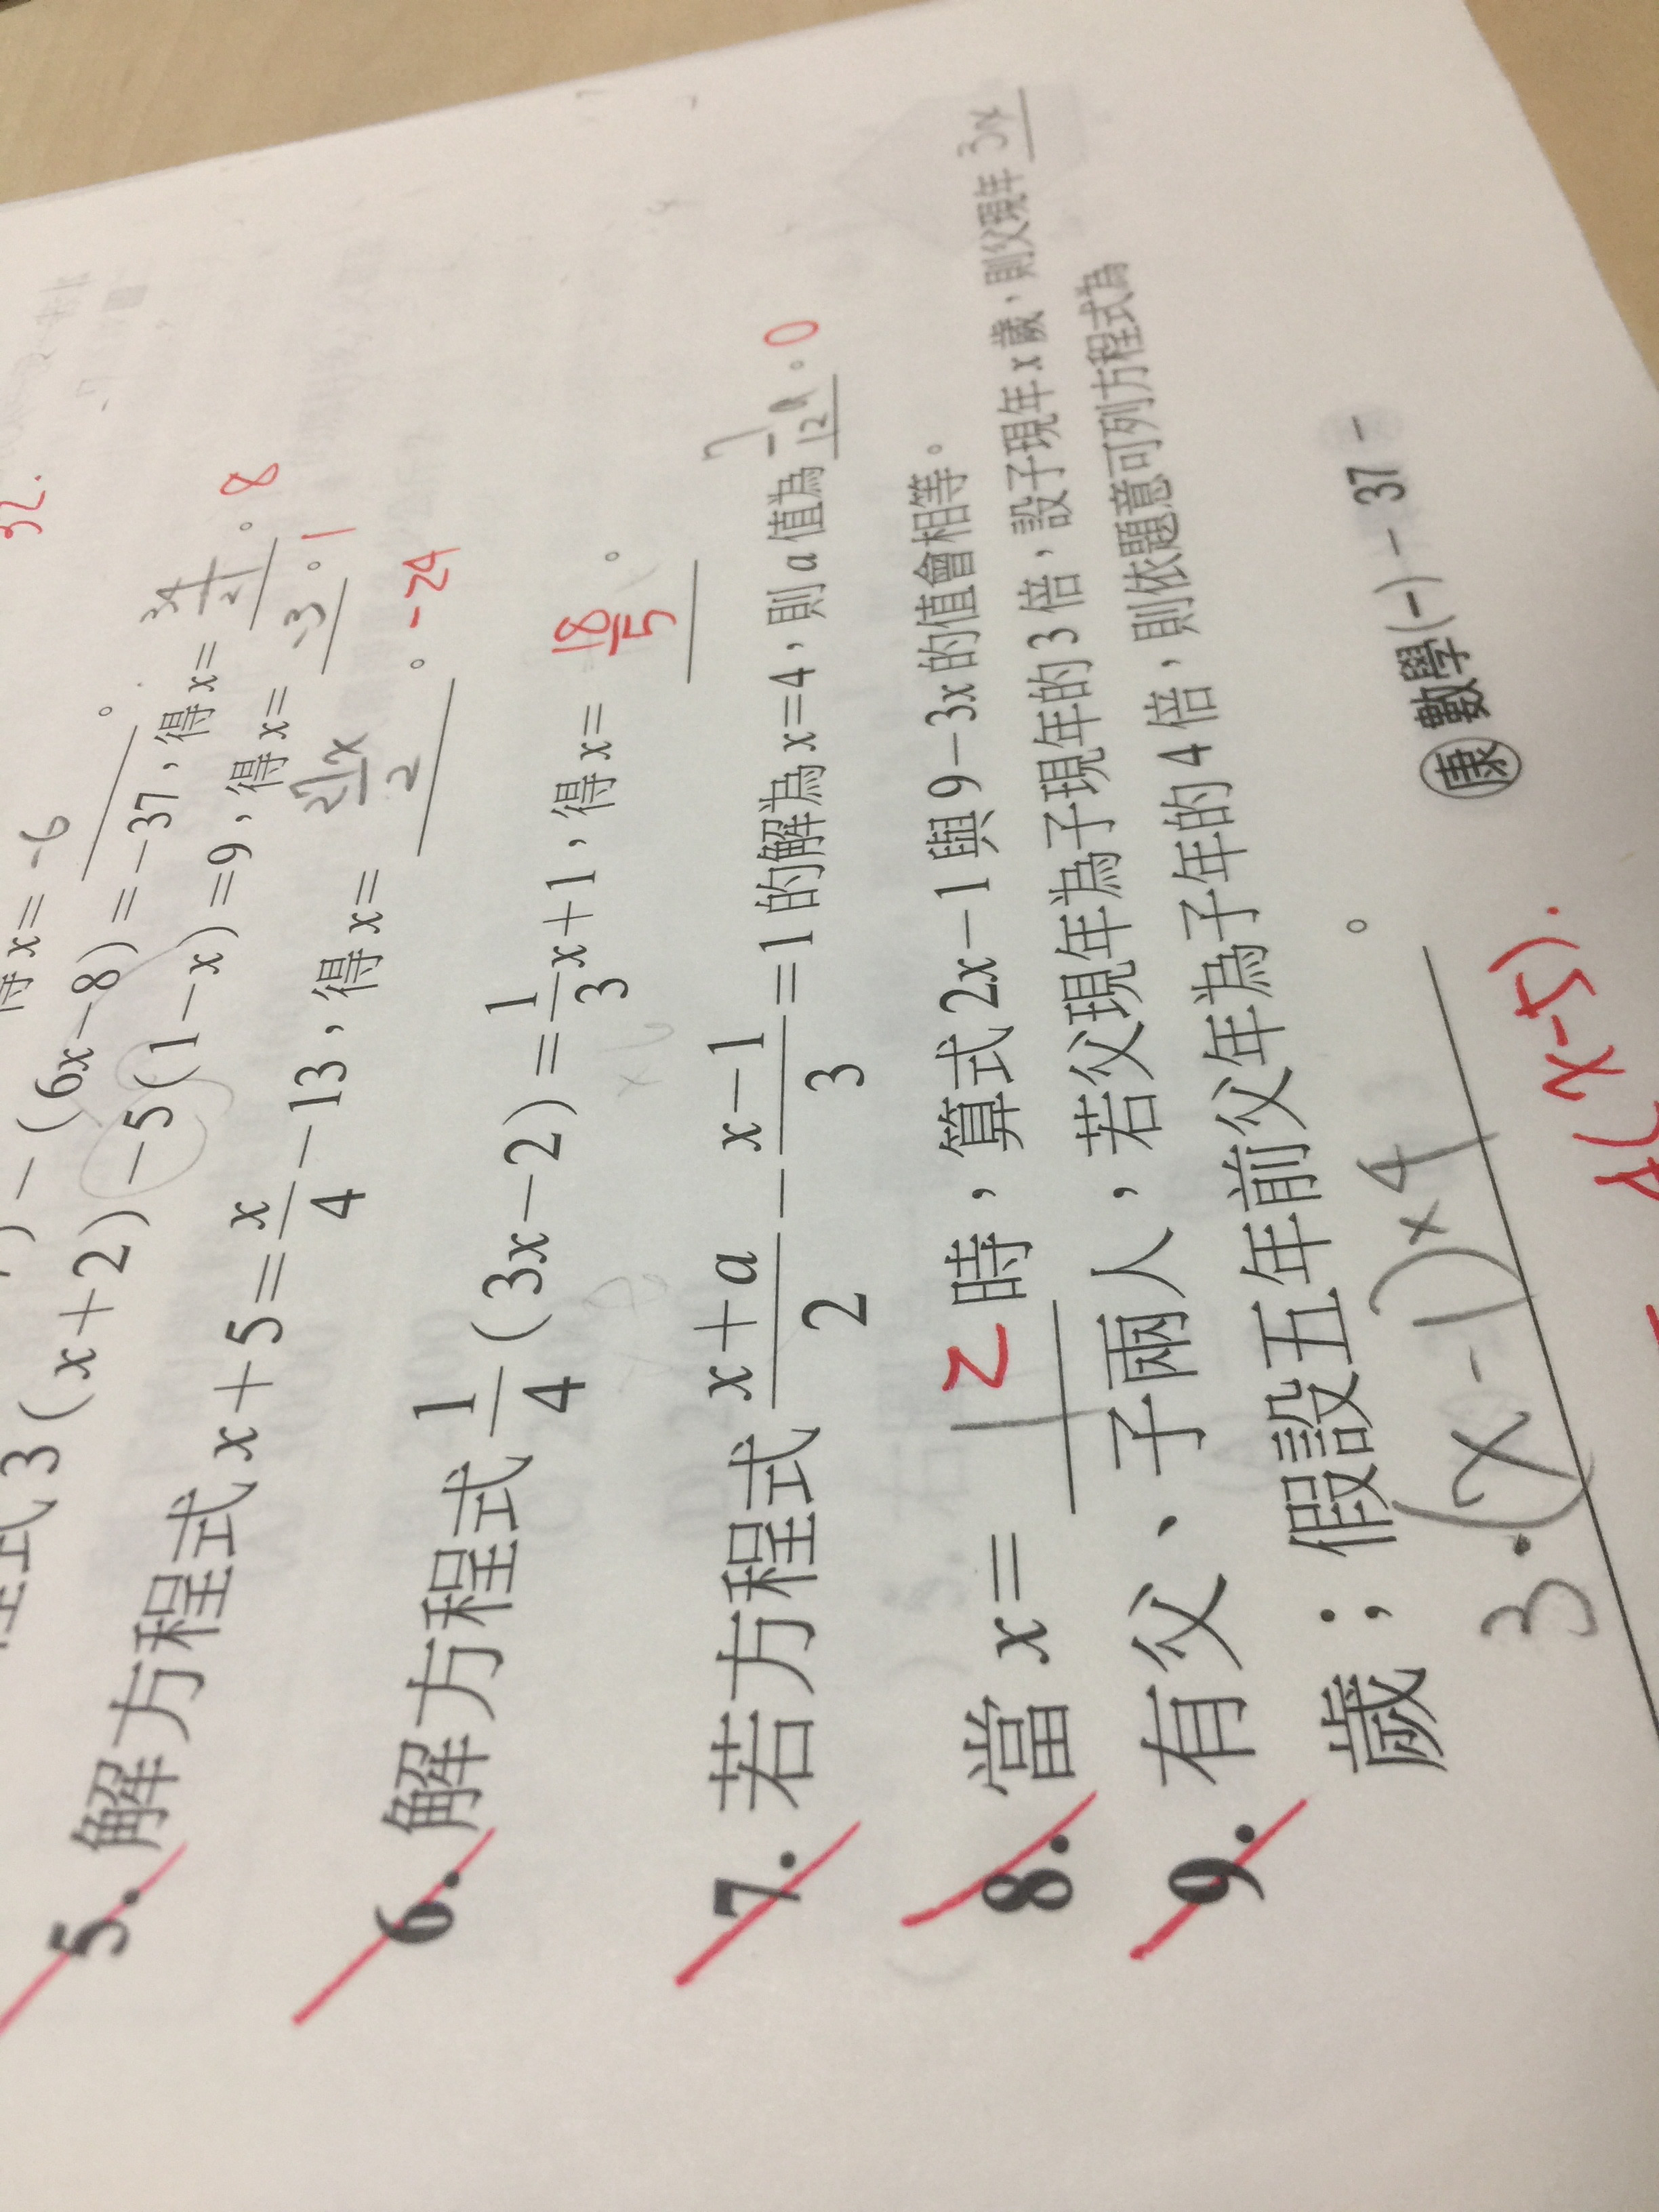 32.
得x= -6 。
-(6x-8)=-37，得x= 34/21 。8
程式3(x+2)-5(1-x)=9，得x= -3 。1
5. 解方程式x+5=x/4-13，得x= 21x/2 。-24
6. 解方程式1/4(3x-2)=1/3x+1，得x= 18/5 。
7. 若方程式(x+a)/2-(x-1)/3=1的解為x=4，則a值為 。0
8. 當x= 1 2 時，算式2x-1與9-3x的值會相等。
9. 有父、子兩人，若父現年為子現年的3倍，設子現年x歲，則父現年 3x
歲；假設五年前父年為子年的4倍，則依題意可列方程式為
3·(x-1)×4 。
4(x-5).
康 數學(一)-37-